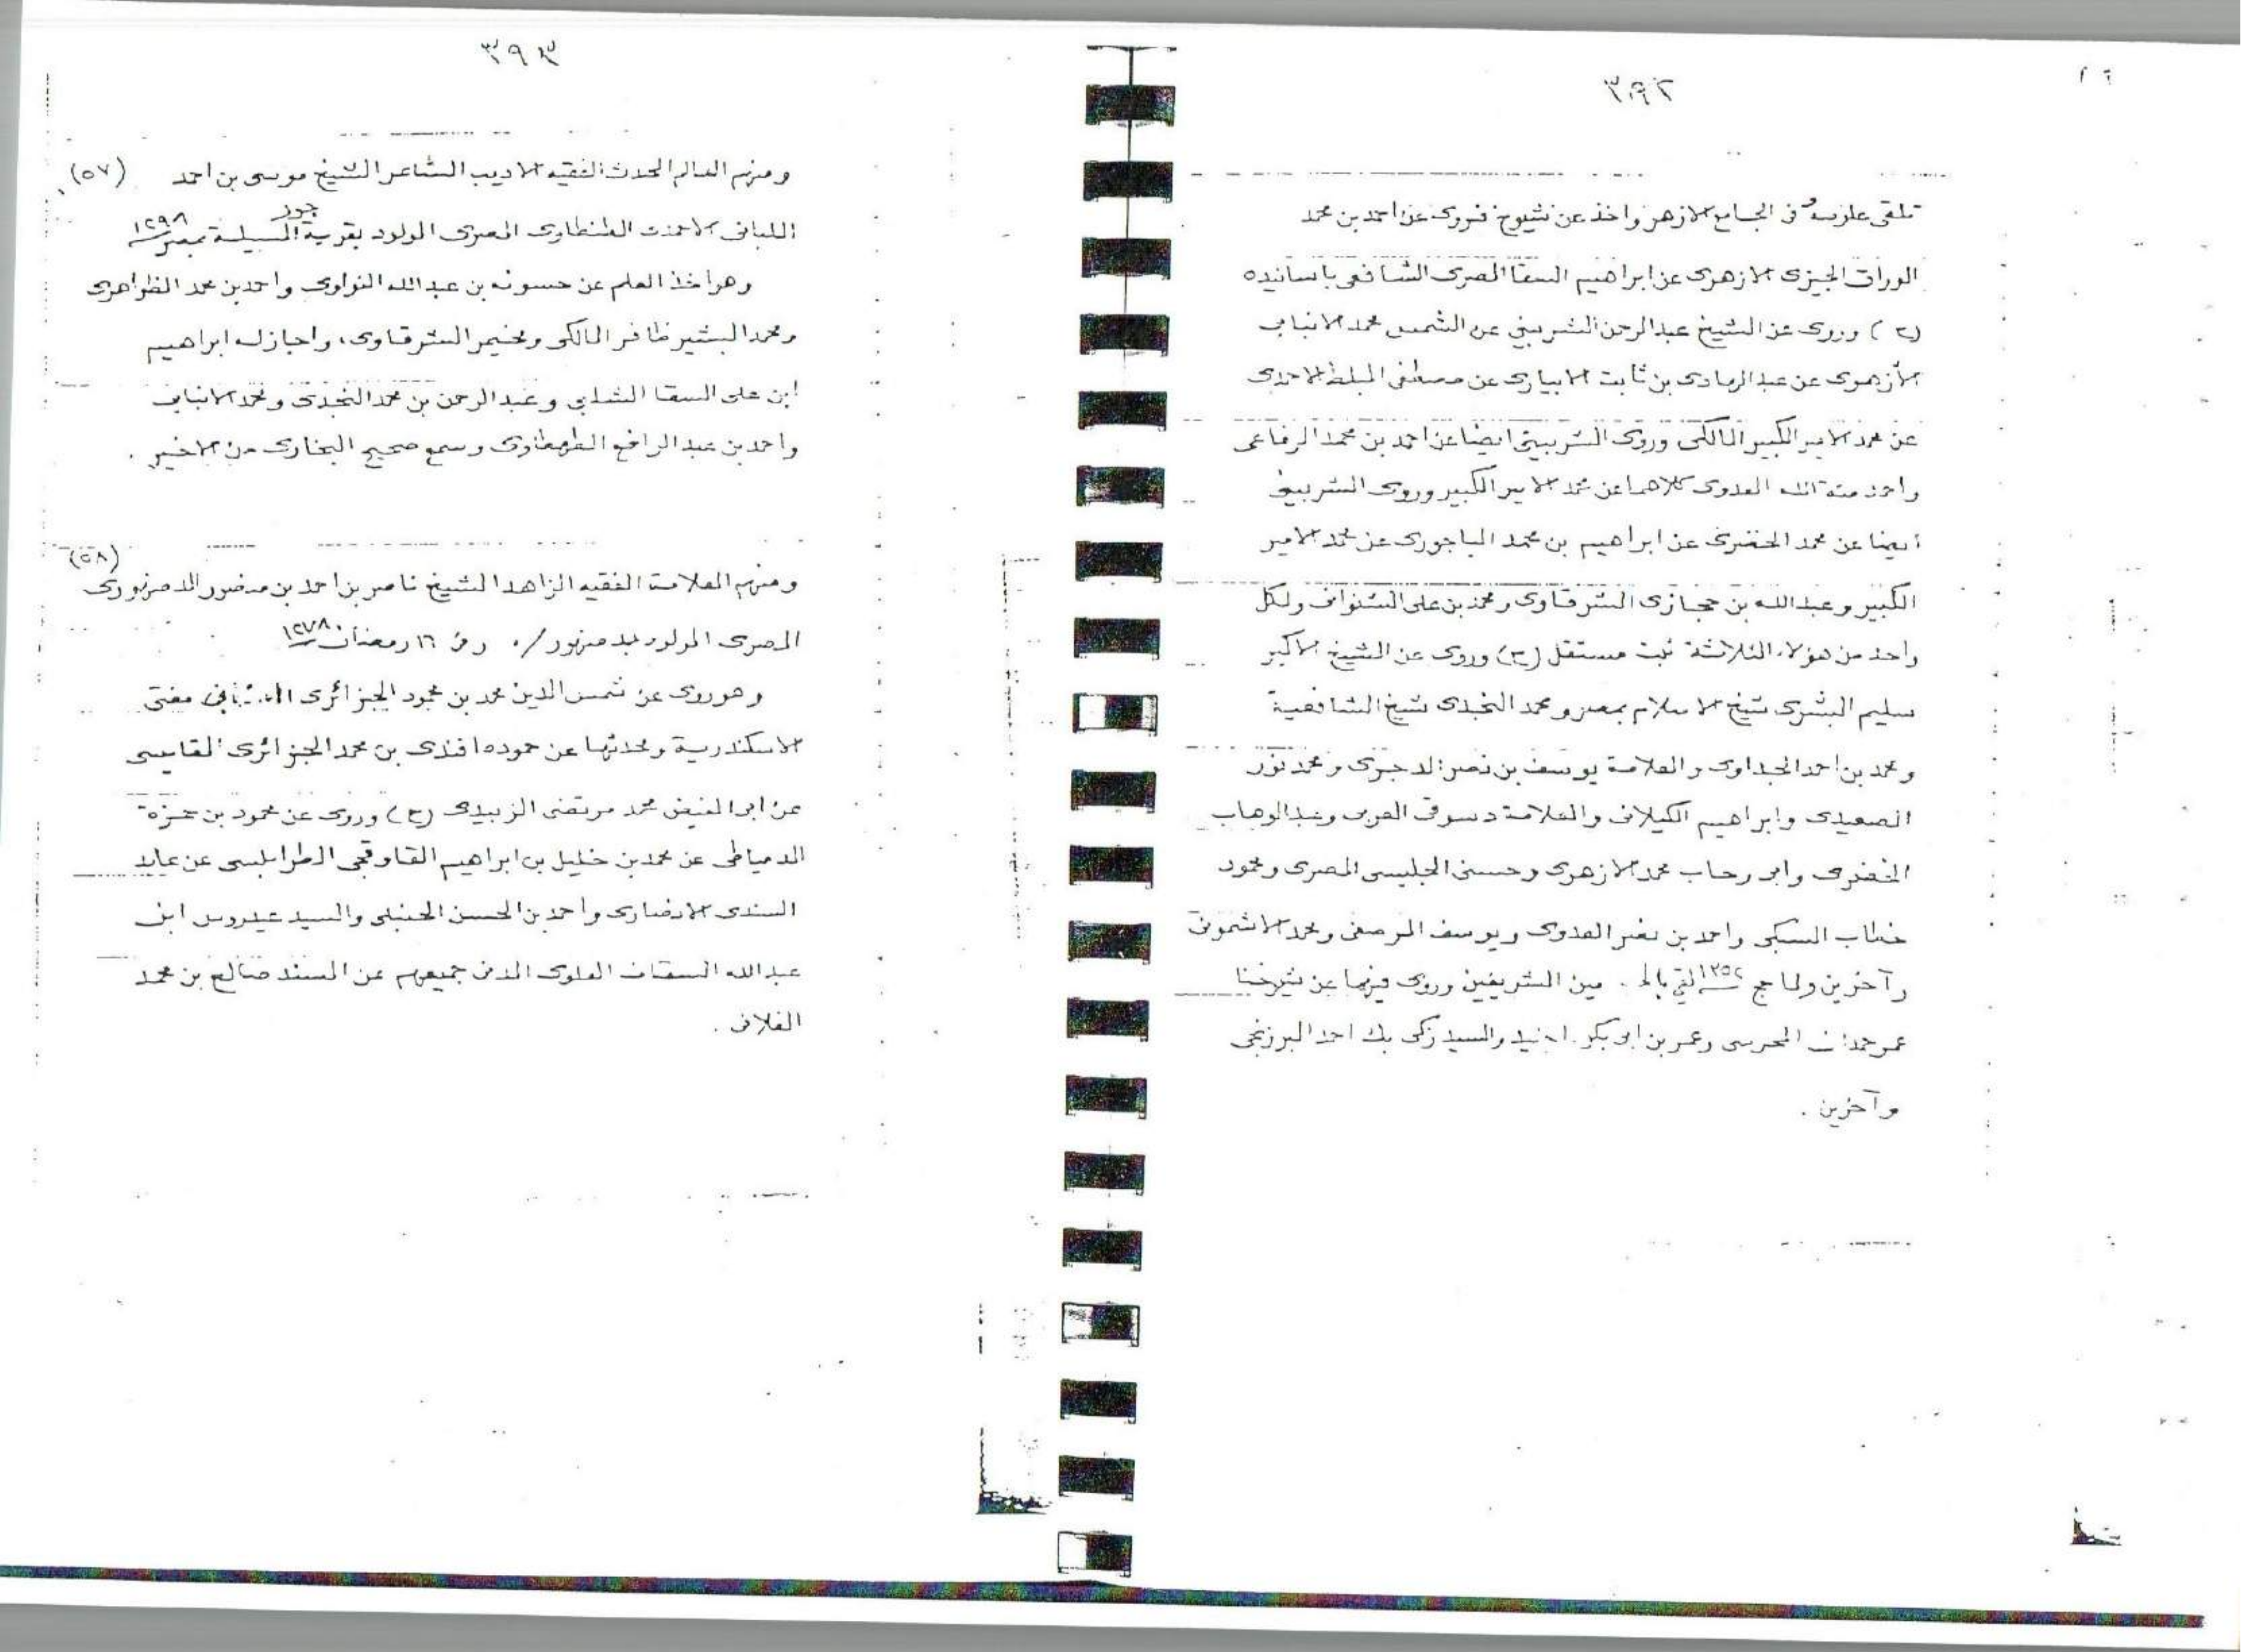 ٣٩٢
تلقى علومه فى الجامع الازهر واخذ عن شيوخ فروى عن احمد بن محمد
الوراق الجيزى الازهرى عن ابراهيم السقا المصرى الشافعى باسانيده
(ح) وروى عن الشيخ عبدالرحمن الشربينى عن الشمس محمد الانبابى
الأزهرى عن عبدالهادى بن ثابت الابيارى عن مصطفى المبلط الاحمدى
عن محمد الامير الكبير المالكى وروى الشربينى ايضا عن احمد بن محمد الرفاعى
واحمد منة الله العدوى كلاهما عن محمد الامير الكبير وروى الشربينى
أيضا عن محمد الخضرى عن ابراهيم بن محمد الباجورى عن محمد الامير
الكبير وعبدالله بن حجازى الشرقاوى ومحمد بن على الشنوانى ولكل
واحد من هؤلاء الثلاثة ثبت مستقل (ح) وروى عن الشيخ الاكبر
سليم البشرى شيخ الاسلام بمصر ومحمد النجدى شيخ الشافعية
ومحمد بن احمد الجداوى والعلامة يوسف بن نصر الدجوى ومحمد نور
الصعيدى وابراهيم الكيلانى والعلامة دسوقى العربى وعبدالوهاب
الخضرى وابى رحاب محمد الازهرى وحسنى الجليسى المصرى ومحمود
خطاب السبكى واحمد بن نصر العدوى ويوسف المرصفى ومحمد الاشمونى
وآخرين ولما حج ١٣٥٢ سنة التقى مين الشريفين وروى فيهما عن شيوخنا
عمر حمدان المحرسى وعمر بن ابى بكر والسيد زكى بك احمد البرزنجى
وآخرين .
٣٩٣
(٥٧) ومنهم العالم المحدث الفقيه الاديب الشاعر الشيخ موسى بن احمد
اللبانى الطنطاوى المصرى المولود بقرية بمصر سنة ١٢٩٨
وهو اخذ العلم عن حسونه بن عبدالله النواوى واحمد بن محمد الظواهرى
ومحمد البشير ظافر المالكى ومخيمر الشرقاوى، واجازله ابراهيم
ابن على السقا الشلبى وعبدالرحمن بن محمد النجدى ومحمد الانبابى
واحمد بن عبد الرافع الطهطاوى وسمع صحيح البخارى من الاخير .
(٥٨)
ومنهم العلامة الفقيه الزاهد الشيخ ناصر بن احمد بن منصور الدمنهورى
المصرى المولود بدمنهور / فى ١٦ رمضان سنة ١٢٧٨
وهو روى عن شمس الدين محمد بن محمود الجزائرى مفتى
الاسكندرية ومحدثها عن حموده افندى بن محمد الجزائرى المقايسى
عن ابى الفيض محمد مرتضى الزبيدى (ح) وروى عن محمود بن حمزة
الدمياطى عن محمد بن خليل بن ابراهيم القاوقجى الطرابلسى عن عابد
السندى الانصارى واحمد بن الحسن الحنبلى والسيد عيدروس ابن
عبدالله السقاف العلوى جميعهم عن المسند صالح بن محمد
الفلانى .